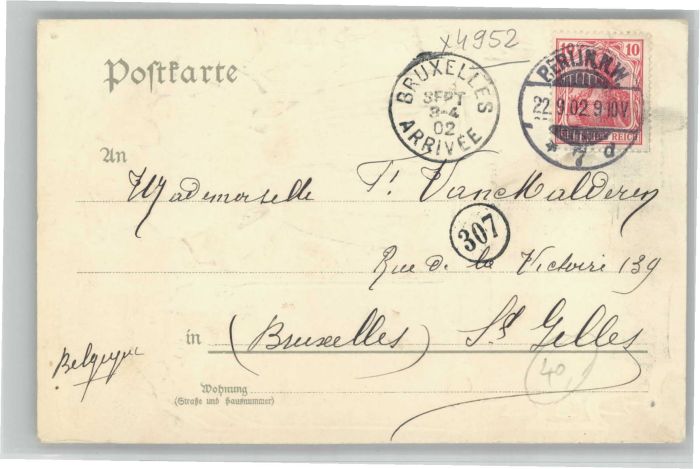 x4952
Postkarte
BRUXELLES
SEPT
3-4
02
ARRIVÉE
10
BERLIN, N.W.
22.9.02.9-10V.
* 7 d
REICH
An
Mademoiselle F. Van Malderen
307
Rue de la Victoire 139
in (Bruxelles) St Gelles
Belgique
40
Wohnung
(Straße und Hausnummer)